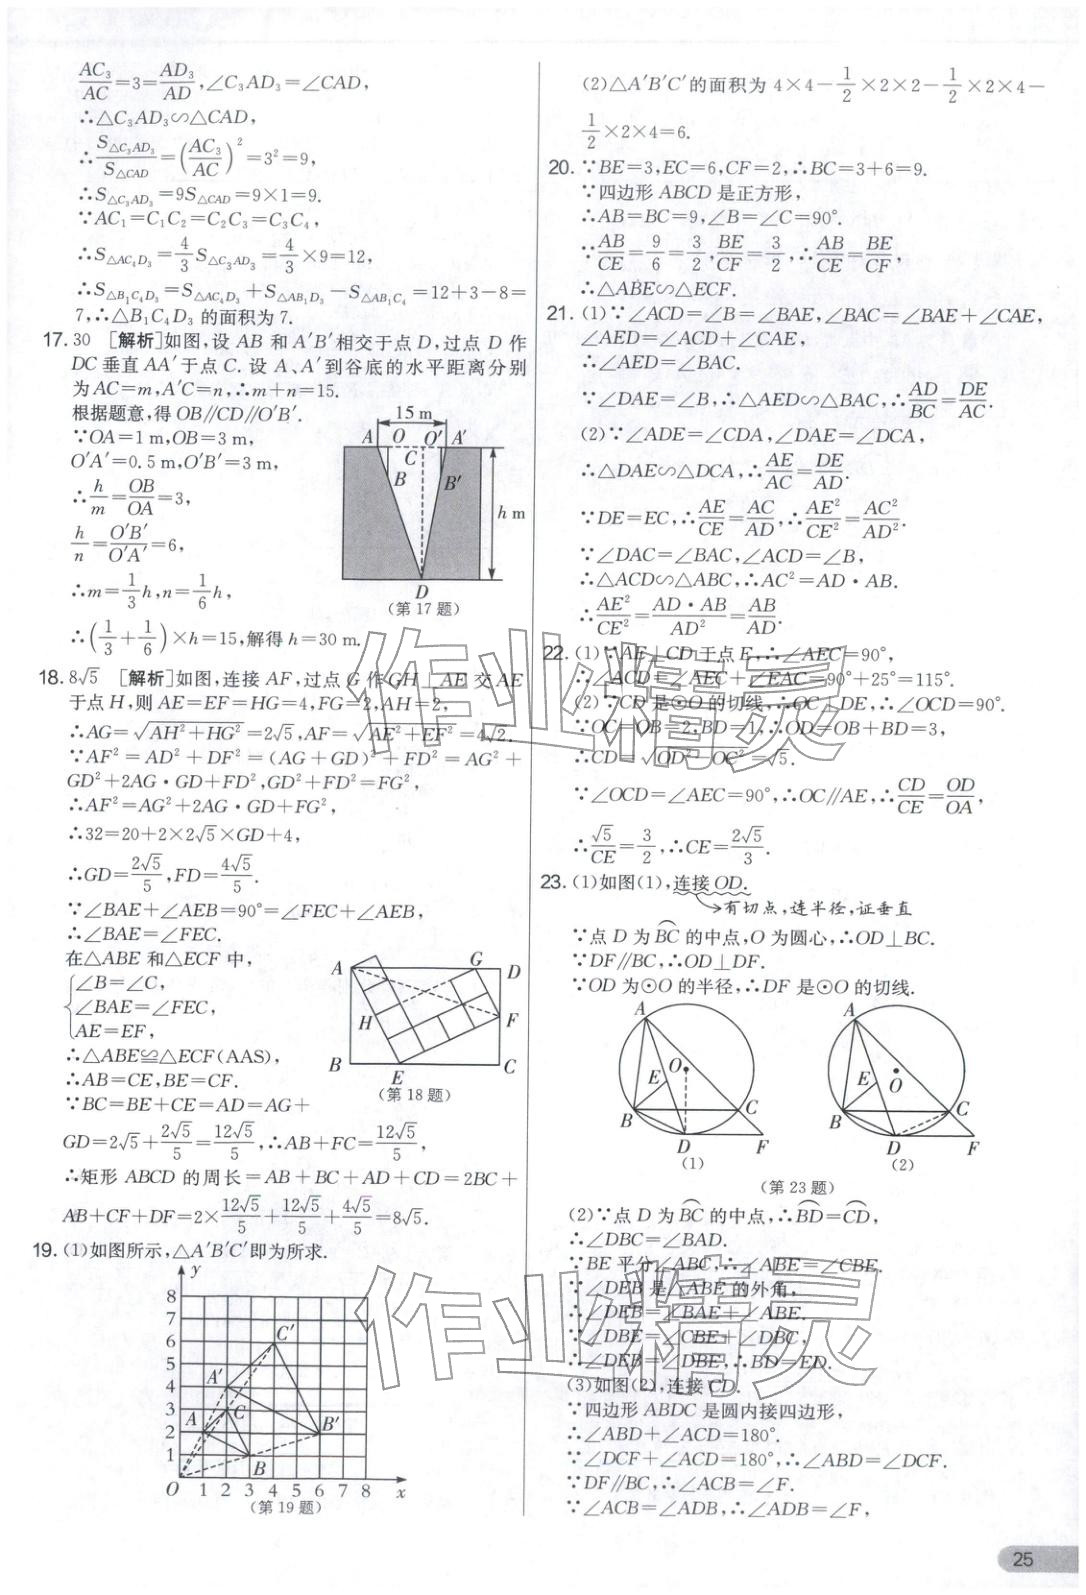 AC₃/AC=3=AD₃/AD,∠C₃AD₃=∠CAD,
∴△C₃AD₃∽△CAD,
∴S△C₃AD₃/S△CAD=(AC₃/AC)²=3²=9,
∴S△C₃AD₃=9S△CAD=9×1=9.
∵AC₁=C₁C₂=C₂C₃=C₃C₄,
∴S△AC₄D₃=4/3 S△C₃AD₃=4/3×9=12,
∴S△B₁C₄D₃=S△AC₄D₃+S△AB₁D₃-S△AB₁C₄=12+3-8=
7,∴△B₁C₄D₃ 的面积为 7.
17. 30 [解析]如图,设 AB 和 A′B′相交于点 D,过点 D 作
DC 垂直 AA′于点 C. 设 A、A′到谷底的水平距离分别
为 AC=m,A′C=n,∴m+n=15.
根据题意,得 OB∥CD∥O′B′.
∵OA=1 m,OB=3 m,
O′A′=0.5 m,O′B′=3 m,
∴h/m=OB/OA=3,
h/n=O′B′/O′A′=6,
∴m=1/3 h,n=1/6 h,
∴(1/3+1/6)×h=15,解得 h=30 m.
15 m
A O O′ A′
C
B B′
h m
D
(第 17 题)
18. 8√5 [解析]如图,连接 AF,过点 G 作 GH⊥AE 交 AE
于点 H,则 AE=EF=HG=4,FG=2,AH=2,
∴AG=√(AH²+HG²)=2√5,AF=√(AE²+EF²)=4√2.
∵AF²=AD²+DF²=(AG+GD)²+FD²=AG²+
GD²+2AG·GD+FD²,GD²+FD²=FG²,
∴AF²=AG²+2AG·GD+FG²,
∴32=20+2×2√5×GD+4,
∴GD=2√5/5,FD=4√5/5.
∵∠BAE+∠AEB=90°=∠FEC+∠AEB,
∴∠BAE=∠FEC.
在△ABE 和△ECF 中,
{∠B=∠C,
∠BAE=∠FEC,
AE=EF,
∴△ABE≌△ECF(AAS),
∴AB=CE,BE=CF.
∵BC=BE+CE=AD=AG+
GD=2√5+2√5/5=12√5/5,∴AB+FC=12√5/5,
∴矩形 ABCD 的周长=AB+BC+AD+CD=2BC+
AB+CF+DF=2×12√5/5+12√5/5+4√5/5=8√5.
A G D
H F
B E C
(第 18 题)
19. (1)如图所示,△A′B′C′即为所求.
y
8
7
6
5
4
3
2
1
C′
A′
A C B′
B
O 1 2 3 4 5 6 7 8 x
(第 19 题)
(2)△A′B′C′的面积为 4×4-1/2×2×2-1/2×2×4-
1/2×2×4=6.
20. ∵BE=3,EC=6,CF=2,∴BC=3+6=9.
∵四边形 ABCD 是正方形,
∴AB=BC=9,∠B=∠C=90°.
∵AB/CE=9/6=3/2,BE/CF=3/2,∴AB/CE=BE/CF,
∴△ABE∽△ECF.
21. (1)∵∠ACD=∠B=∠BAE,∠BAC=∠BAE+∠CAE,
∠AED=∠ACD+∠CAE,
∴∠AED=∠BAC.
∵∠DAE=∠B,∴△AED∽△BAC,∴AD/BC=DE/AC.
(2)∵∠ADE=∠CDA,∠DAE=∠DCA,
∴△DAE∽△DCA,∴AE/AC=DE/AD.
∵DE=EC,∴AE/CE=AC/AD,∴AE²/CE²=AC²/AD².
∵∠DAC=∠BAC,∠ACD=∠B,
∴△ACD∽△ABC,∴AC²=AD·AB.
∴AE²/CE²=AD·AB/AD²=AB/AD.
22. (1)∵AE⊥CD 于点 E,∴∠AEC=90°,
∴∠ACD=∠AEC+∠EAC=90°+25°=115°.
(2)∵CD 是⊙O 的切线,∴OC⊥DE,∴∠OCD=90°.
∵OC=OB=2,BD=1,∴OD=OB+BD=3,
∴CD=√(OD²-OC²)=√5.
∵∠OCD=∠AEC=90°,∴OC∥AE,∴CD/CE=OD/OA,
∴√5/CE=3/2,∴CE=2√5/3.
23. (1)如图(1),连接 OD.
有切点,连半径,证垂直
∵点 D 为B͡C的中点,O 为圆心,∴OD⊥BC.
∵DF∥BC,∴OD⊥DF.
∵OD 为⊙O 的半径,∴DF 是⊙O 的切线.
A
O
E
B C
D F
(1)
A
E O
B C
D F
(2)
(第 23 题)
(2)∵点 D 为B͡C的中点,∴B͡D=C͡D,
∴∠DBC=∠BAD.
∵BE 平分∠ABC,∴∠ABE=∠CBE.
∵∠DEB 是△ABE 的外角,
∴∠DEB=∠BAE+∠ABE.
∵∠DBE=∠CBE+∠DBC,
∴∠DEB=∠DBE,∴BD=ED.
(3)如图(2),连接 CD.
∵四边形 ABDC 是圆内接四边形,
∴∠ABD+∠ACD=180°.
∵∠DCF+∠ACD=180°,∴∠ABD=∠DCF.
∵DF∥BC,∴∠ACB=∠F.
∵∠ACB=∠ADB,∴∠ADB=∠F,
作业精灵
作业精灵
25